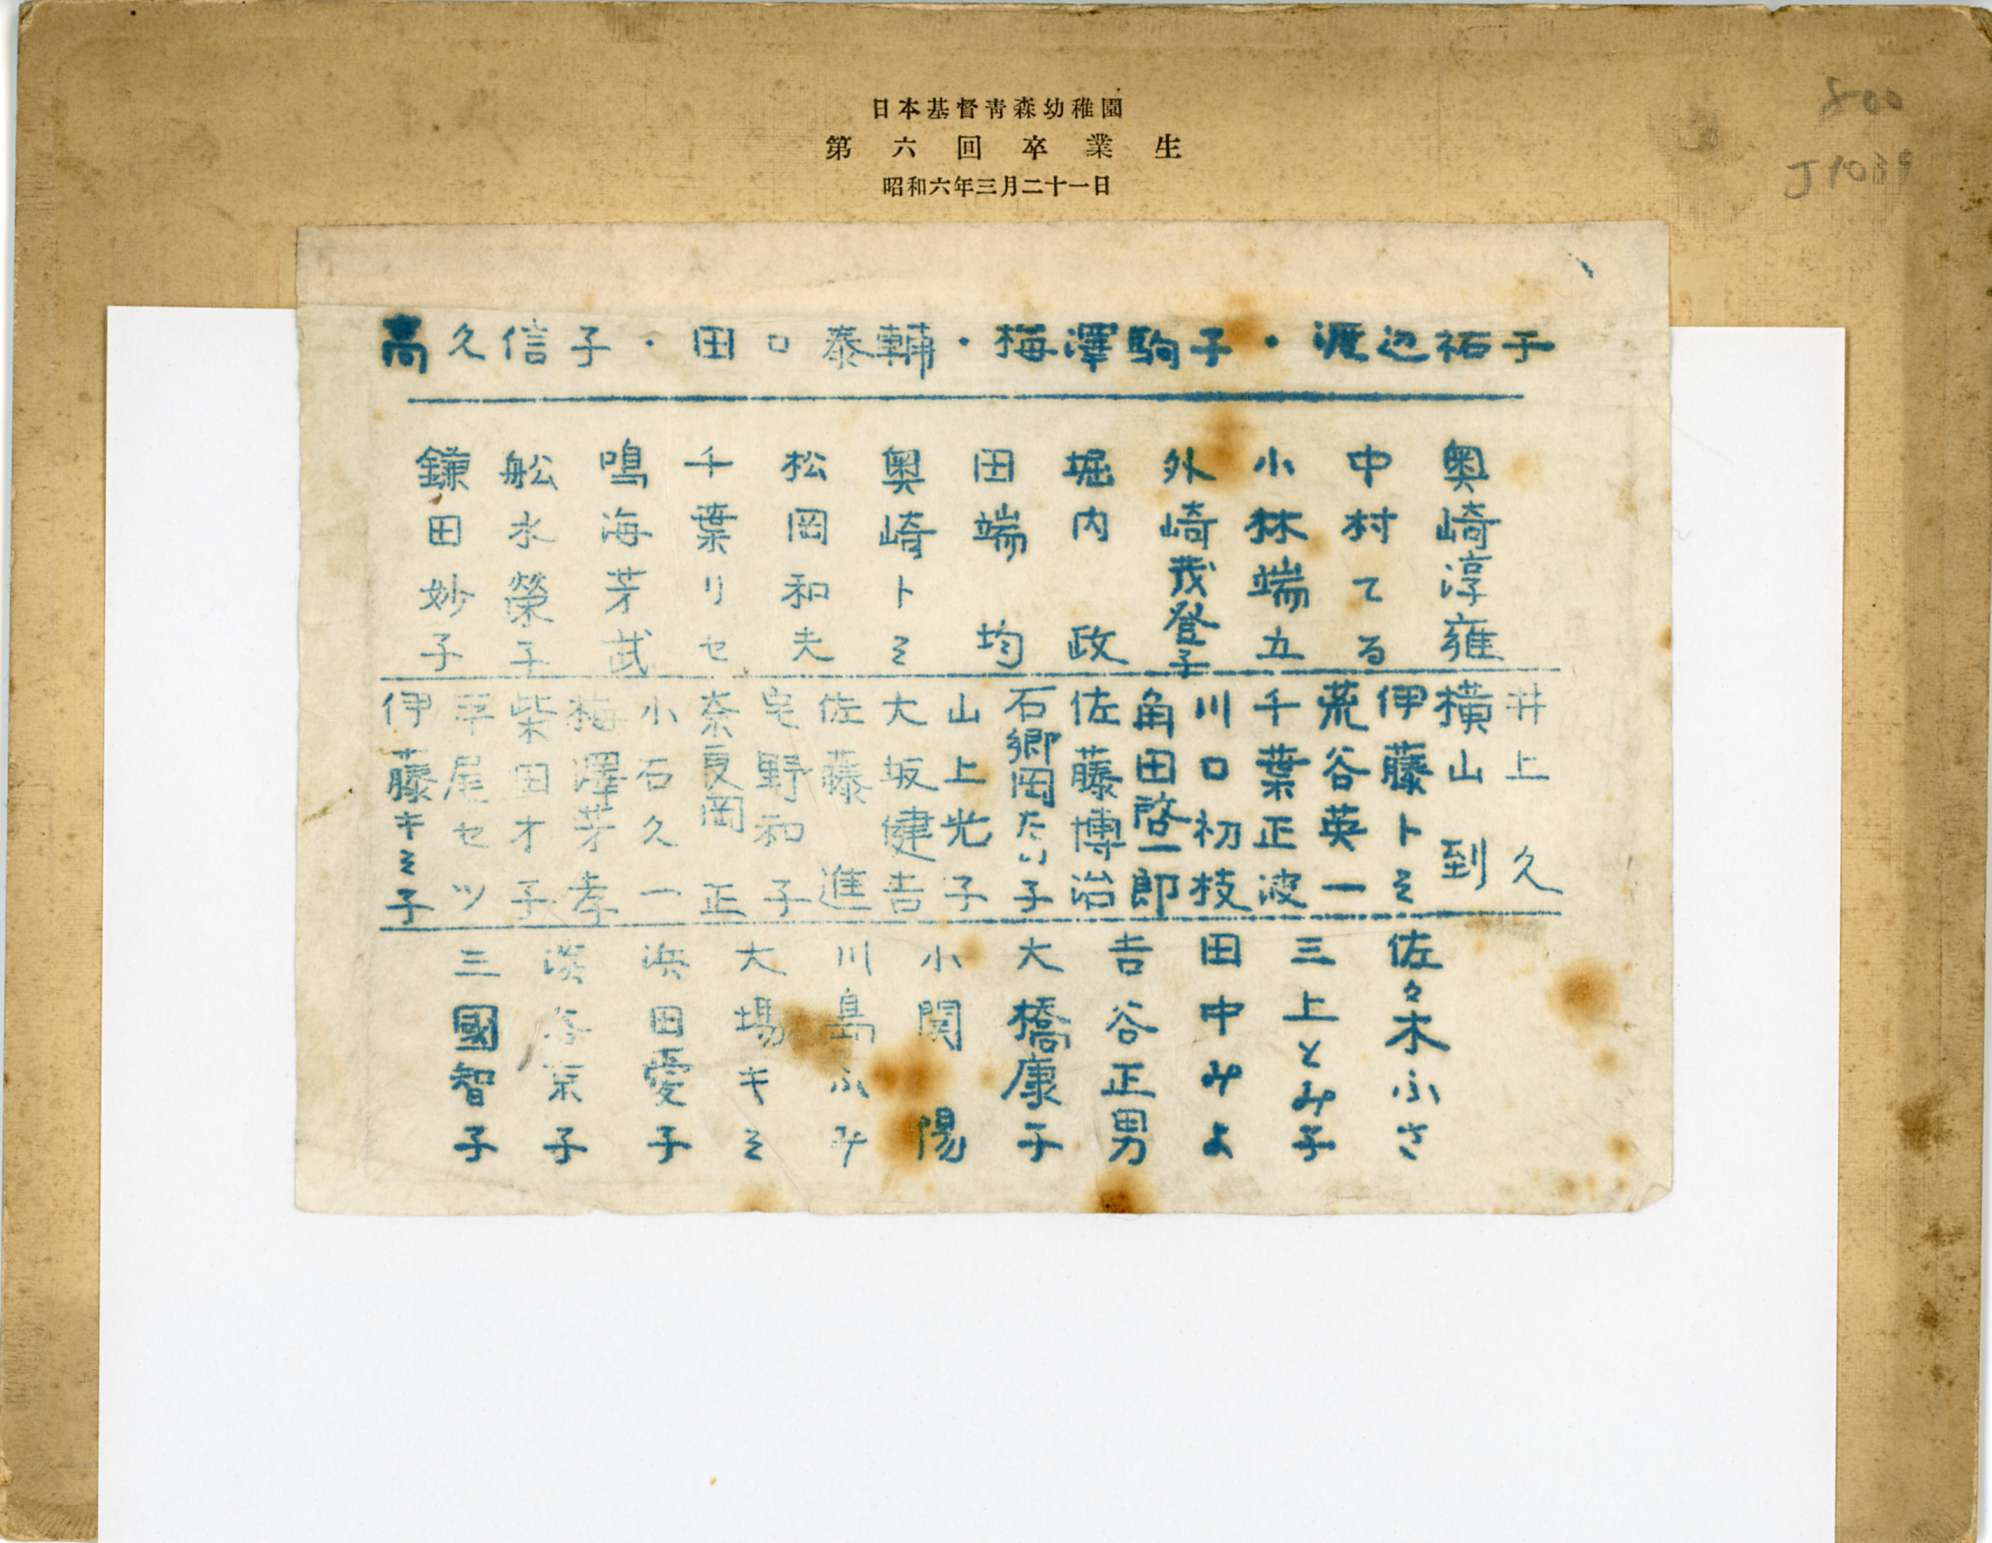 日本基督青森幼稚園
第六回卒業生
昭和六年三月二十一日
800
J1039
高久信子・田口泰輔・梅澤駒子・渡辺祐子
奥崎淳雍
中村てる
小林端五
外崎茂登子
堀内政
田端均
奥崎トミ
松岡和夫
千葉リセ
鳴海芽武
舩水榮子
鎌田妙子
井上久
横山到
伊藤トミ
荒谷英一
千葉正波
川口初枝
角田啓一郎
佐藤博治
石郷岡たり子
山上光子
大坂健吉
佐藤進
宅野和子
奈良岡正
小石久一
梅澤芽孝
柴田才子
平尾セツ
伊藤キミ子
佐々木ふさ
三上とみ子
田中みよ
吉谷正男
大橋康子
小関陽
川島ふみ
大場キミ
浜田愛子
子
三國智子